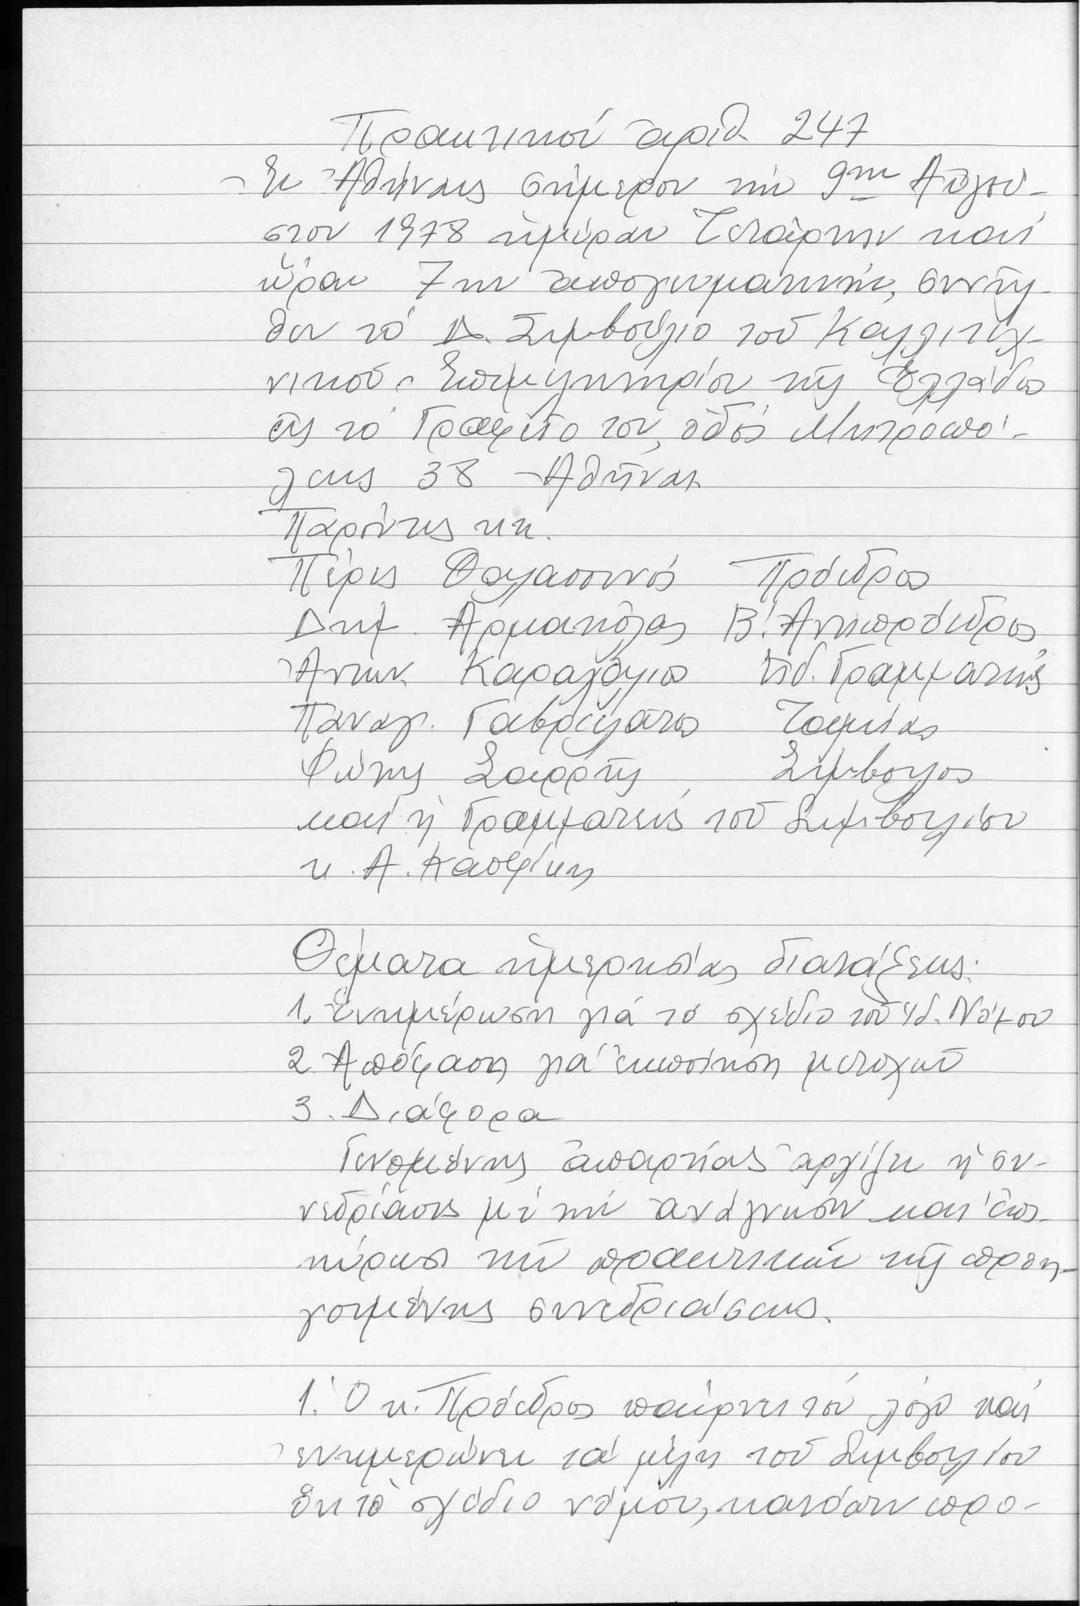 Πρακτικόν ἀριθ 247
Ἐν Ἀθήναις σήμερον τήν 9ην Αὐγού-
στου 1978 ἡμέραν Τετάρτην καί
ὥραν 7ην ἀπογευματινήν, συνῆλ-
θεν τό Δ. Συμβούλιο τοῦ Καλλιτεχ-
νικοῦ Ἐπιμελητηρίου τῆς Ἑλλάδος
εἰς τό Γραφεῖο του, ὁδός Μητροπό-
λεως 38 Ἀθῆναι
Παρόντες κκ.
Πέρις Θαλασσινός Πρόεδρος
Δημ. Αρμακόλας Β! Ἀντιπρόεδρος
Ἀντων. Καραχάλιος Εἰδ. Γραμματεύς
Παναγ. Γαβρελᾶτος Ταμίας
Φώτης Σαρρῆς Σύμβουλος
καί ἡ Γραμματεύς τοῦ Συμβουλίου
κ. Α.
Θέματα ἡμερησίας διατάξεως:
1. Ἐνημέρωση γιά τό σχέδιο τοῦ Εἰδ. Νόμου
2. Ἀπόφαση γιά ἐκποίηση μετοχῶν
3. Διάφορα
Γενομένης ἀπαρτίας ἀρχίζει ἡ συ-
νεδρίασις μέ τήν ἀνάγνωσιν καί ἐπι-
κύρωσι τῶν πρακτικῶν τῆς προη-
γουμένης συνεδριάσεως.
1. Ὁ κ. Πρόεδρος παίρνει τόν λόγο καί
ἐνημερώνει τά μέλη τοῦ Συμβουλίου
ὅτι τό σχέδιο νόμου, κατόπιν προ-